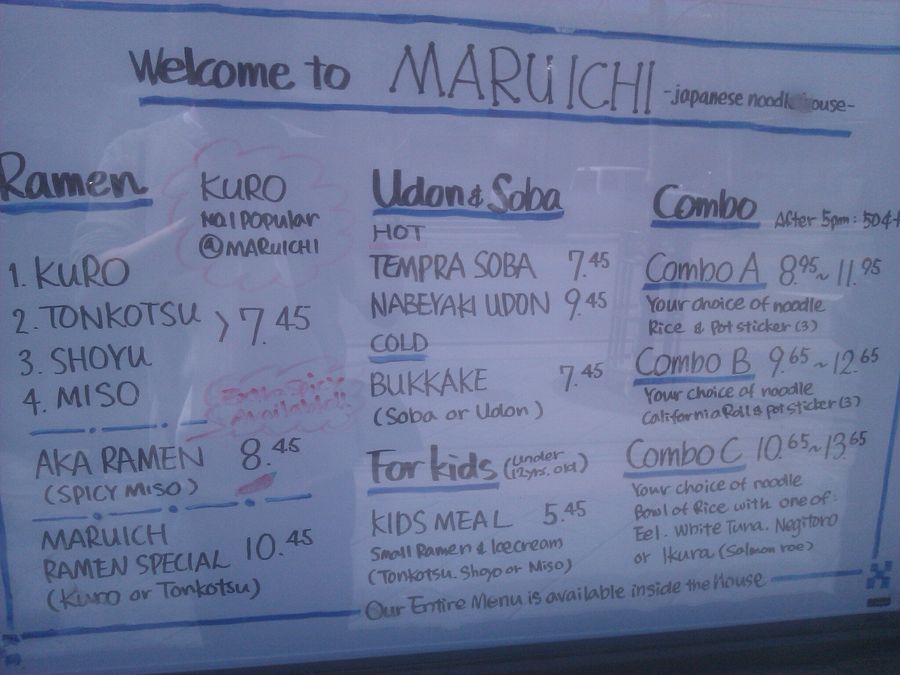 Welcome to MARUICHI -japanese noodle house-
Ramen
KURO
No1 POPULAR
@MARUICHI
1. KURO
2. TONKOTSU > 7.45
3. SHOYU
4. MISO
Extra Spicy
Available!!
AKA RAMEN 8.45
(SPICY MISO)
MARUICH
RAMEN SPECIAL 10.45
(Kuro or Tonkotsu)
Udon & Soba
HOT
TEMPRA SOBA 7.45
NABEYAKI UDON 9.45
COLD
BUKKAKE 7.45
(Soba or Udon)
For kids (under 12yrs. old)
KIDS MEAL 5.45
Small Ramen & Icecream
(Tonkotsu. Shoyo or Miso)
Combo After 5pm: 50¢
Combo A 8.95~11.95
Your choice of noodle
Rice & Pot sticker (3)
Combo B 9.65~12.65
Your choice of noodle
California Roll & Pot sticker (3)
Combo C 10.65~13.65
Your choice of noodle
Bowl of Rice with one of:
Eel. White Tuna. Negitoro
or Ikura (Salmon roe)
Our Entire Menu is available inside the House